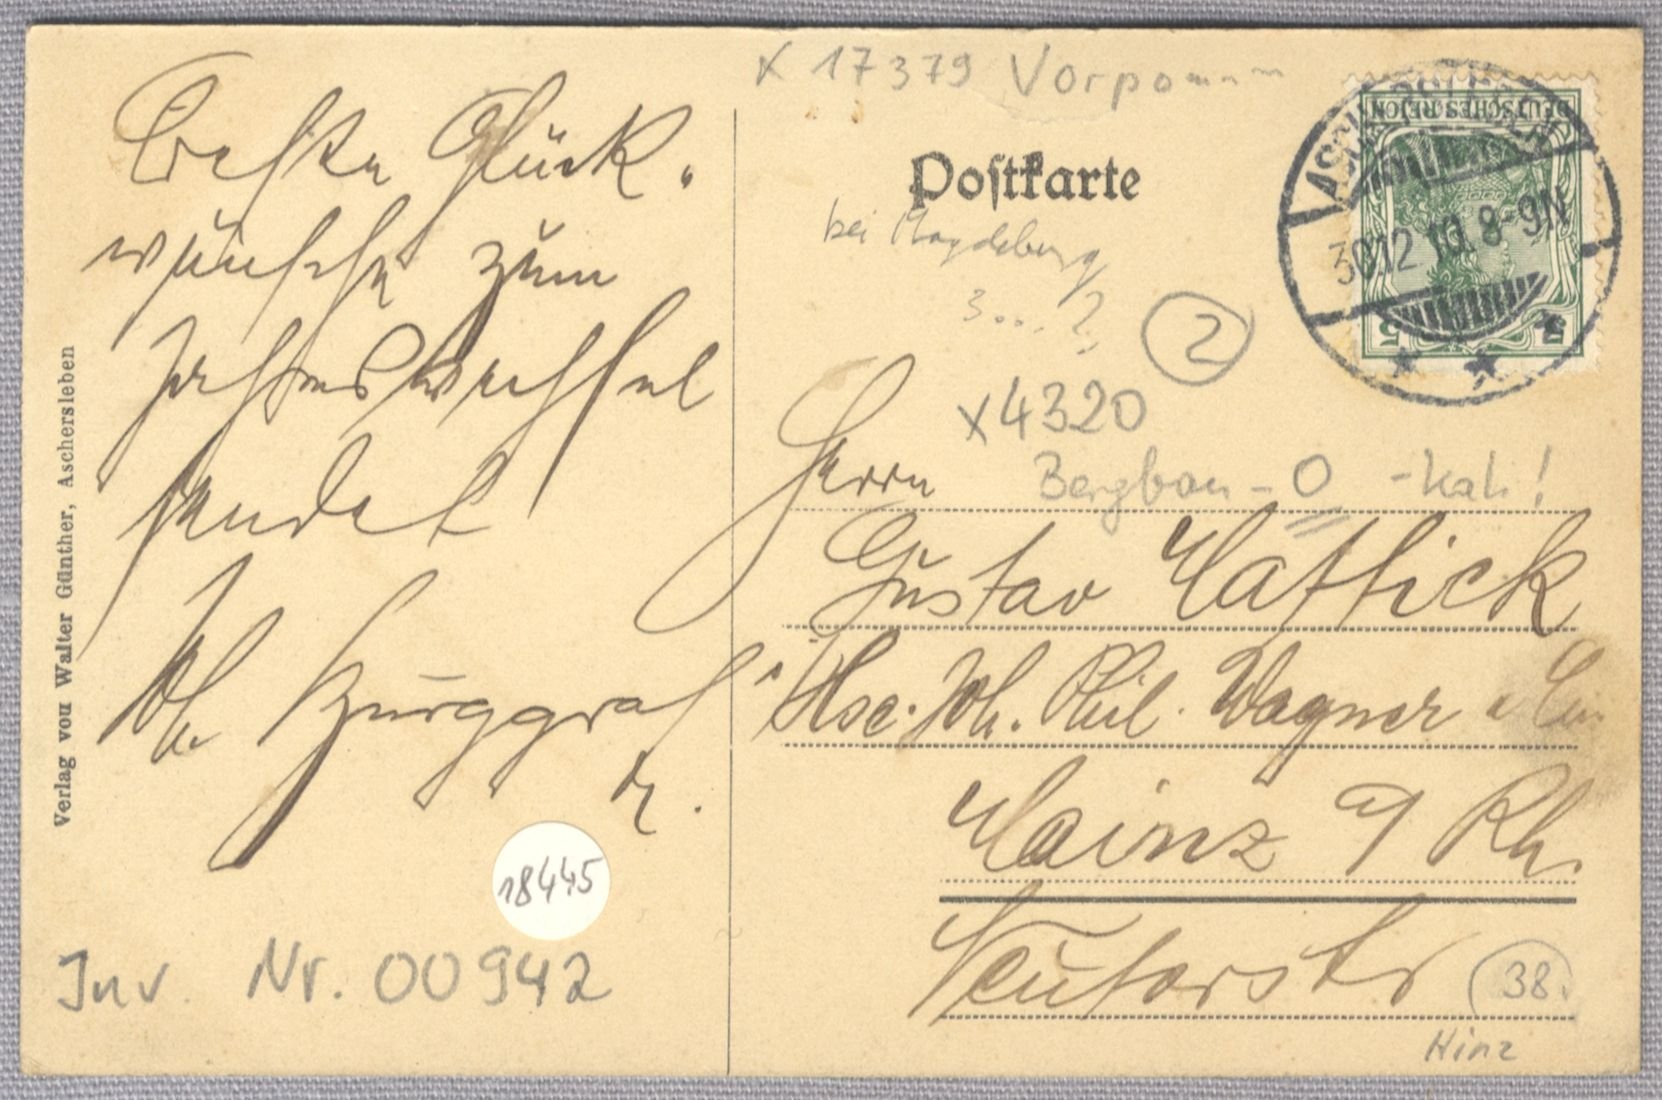 x 17379 Vorpomm
Postkarte
bei Magdeburg
3...?
2
x4320
Bergbau - O - kali!
DEUTSCHES REICH
5
ASCHERSLEBEN
30.12.10. 8-9N
Beste Glück-
wünsche zum
Jahreswechsel
sendet
Burggraf
Verlag von Walter Günther, Aschersleben
18445
Inv. Nr. 00942
Herrn
Gustav Hattick
Joh. Phil. Wagner
Mainz a/Rh.
Neutorstr
38.
Hinz